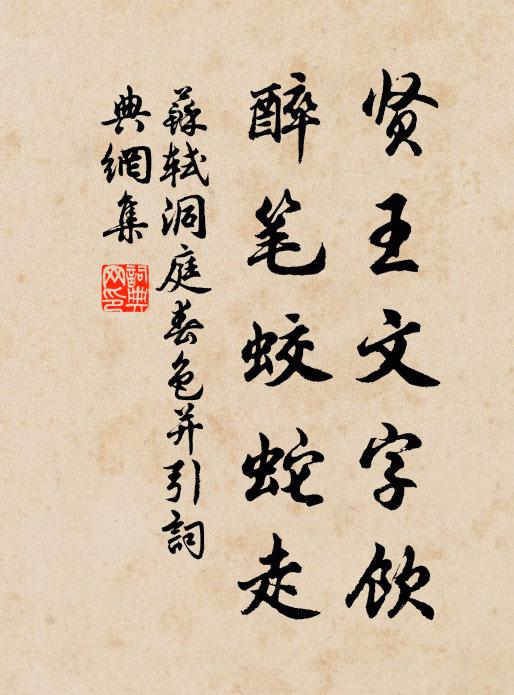 贤王文字饮
醉笔蛟蛇走
蘇軾洞庭春色并引詞
典網集
詞典网印